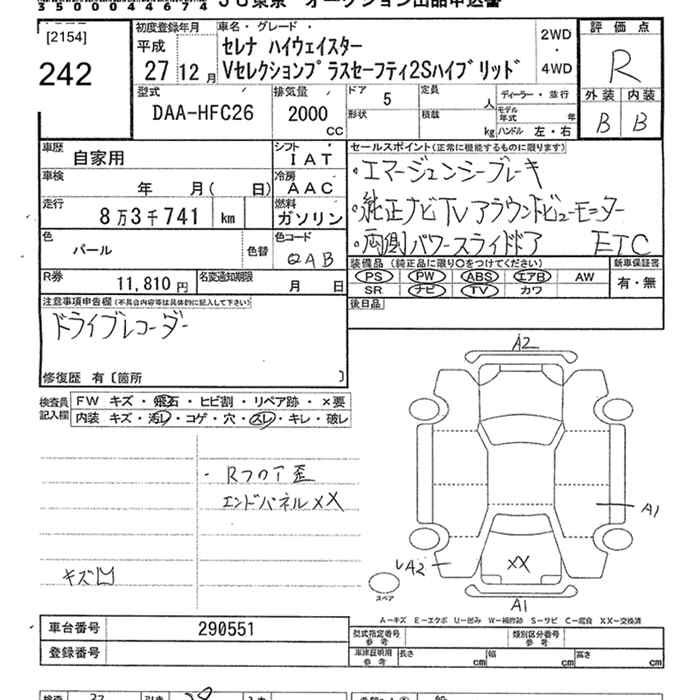 35000044674
JU東京 オークション出品申込書
[2154]
242
初度登録年月
平成
27 12月
車名・グレード・
セレナ ハイウェイスター
Vセレクションプラスセーフティ2Sハイブリッド
2WD
・
4WD
評価点
R
外装 内装
B B
型式
DAA-HFC26
排気量
2000
CC
ドア 5
形状
定員 人
積載 kg
ディーラー・並行
モデル年式 年
ハンドル 左・右
車歴
自家用
シフト
IAT
車検
年 月( 日)
冷房
AAC
走行
8万3千741 km
燃料
ガソリン
色
パール
色替
色コード
QAB
R券
11,810円
名変通知期限
月 日
セールスポイント(正常に機能するものに限ります)
・エマージェンシーブレーキ
・純正ナビTVアラウンドビューモニター
・両側パワースライドドア ETC
装備品(純正品に限り〇をつけてください)
PS PW ABS エアB AW
SR ナビ TV カワ
新車保証書
有・無
後日品
注意事項申告欄(不具合内容等は具体的に記入して下さい)
ドライブレコーダー
修復歴 有〔箇所 〕
検査員記入欄
FW キズ・飛石・ヒビ割・リペア跡・×要
内装 キズ・汚レ・コゲ・穴・スレ・キレ・破レ
・Rフロア歪
エンドパネルXX
キズ凹
A2
A1
XX
A2
A1
スペア
A-キズ E-エクボ U-凹み W-補修跡 S-サビ C-腐食 XX-交換済
車台番号 290551
登録番号
型式指定番号
参考
類別区分番号
参考
車庫証明用
参考
長さ cm
幅 cm
高さ cm